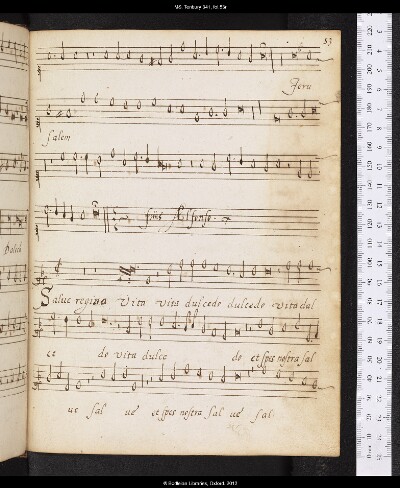 MS. Tenbury 341, fol.53r
53
Jeru
salem
finis
Salue regina Vita vita dulcede dulcede vita dul
ce de vita dulce de et spes nostra sal
ue sal ue et spes nostra sal ue sal
© Bodleian Libraries, Oxford, 2012